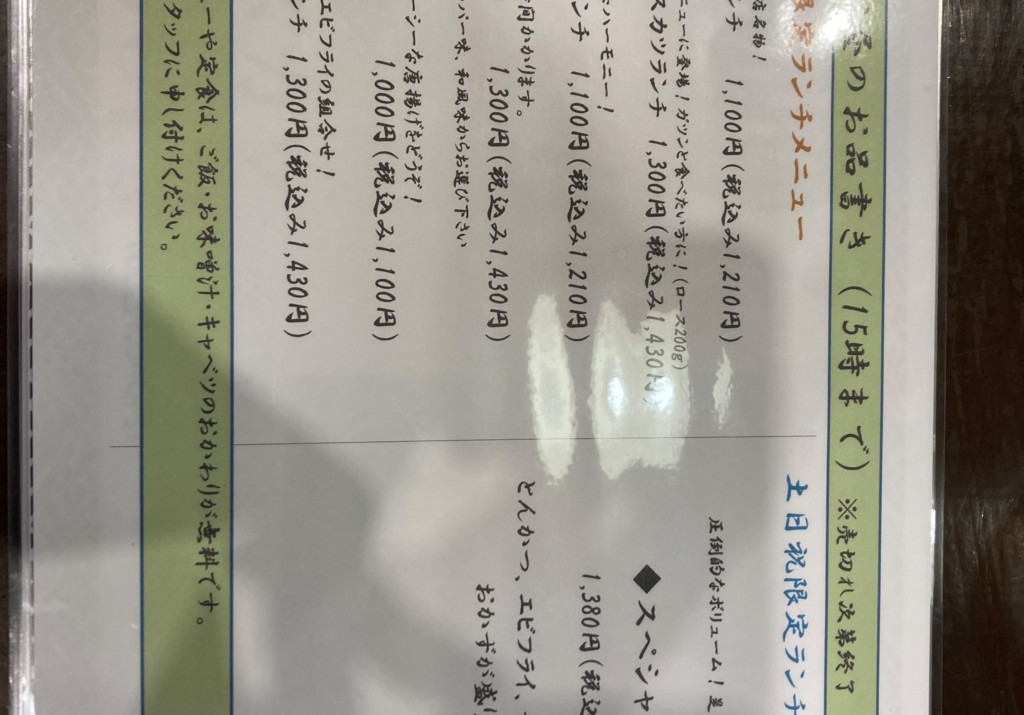 のお品書き (15時まで) ※売切れ次第終了
定ランチメニュー
店名物!
ンチ 1,100円(税込み1,210円)
ニューに登場!ガツンと食べたい方に!(ロース200g)
スカツランチ 1,300円(税込み1,430円)
ハーモニー!
ンチ 1,100円(税込み1,210円)
間かかります。
1,300円(税込み1,430円)
バー味、和風味からお選び下さい
ーシーな唐揚げをどうぞ!
1,000円(税込み1,100円)
エビフライの組合せ!
ンチ 1,300円(税込み1,430円)
土日祝限定ランチ
圧倒的なボリューム!
◆スペシャ
1,380円(税込
とんかつ、エビフライ、
おかずが盛り
ーや定食は、ご飯・お味噌汁・キャベツのおかわりが無料です。
タッフに申し付けください。